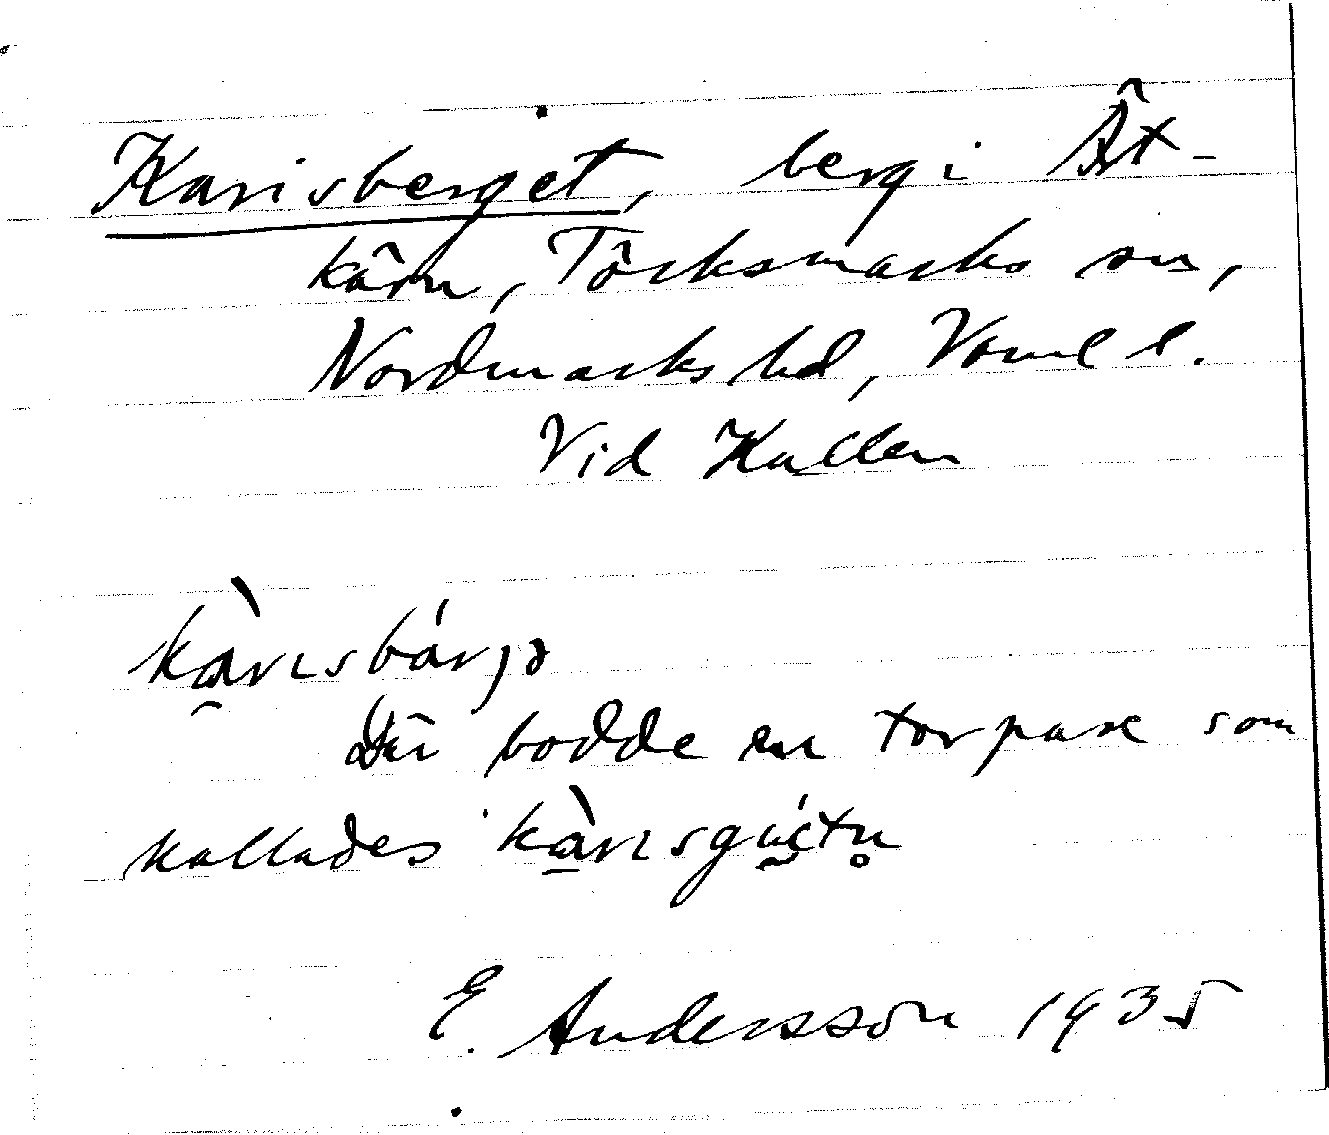 Karisberget, berg i Ät-
kärn, Töcksmarks sn,
Nordmarks hd, Värml l.
Vid Kallen
kàrısbárjə
Där bodde en torpare som
kallades kàrısgústu̥
E. Andersson 1935